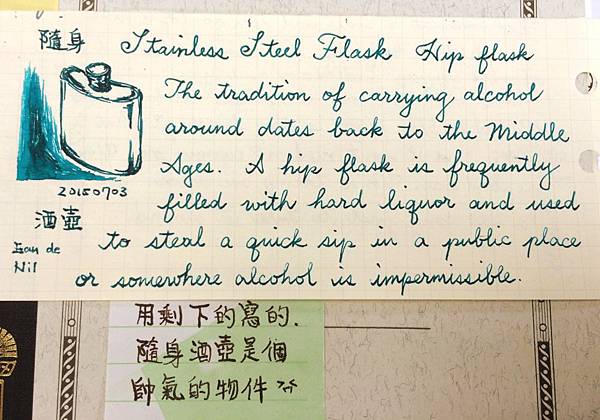 隨身
Stainless Steel Flask Hip flask
The tradition of carrying alcohol
around dates back to the Middle
Ages. A hip flask is frequently
filled with hard liquor and used
to steal a quick sip in a public place
or somewhere alcohol is impermissible.
20150703
酒壺
Eau de
Nil
用剩下的寫的.
隨身酒壺是個
帥氣的物件